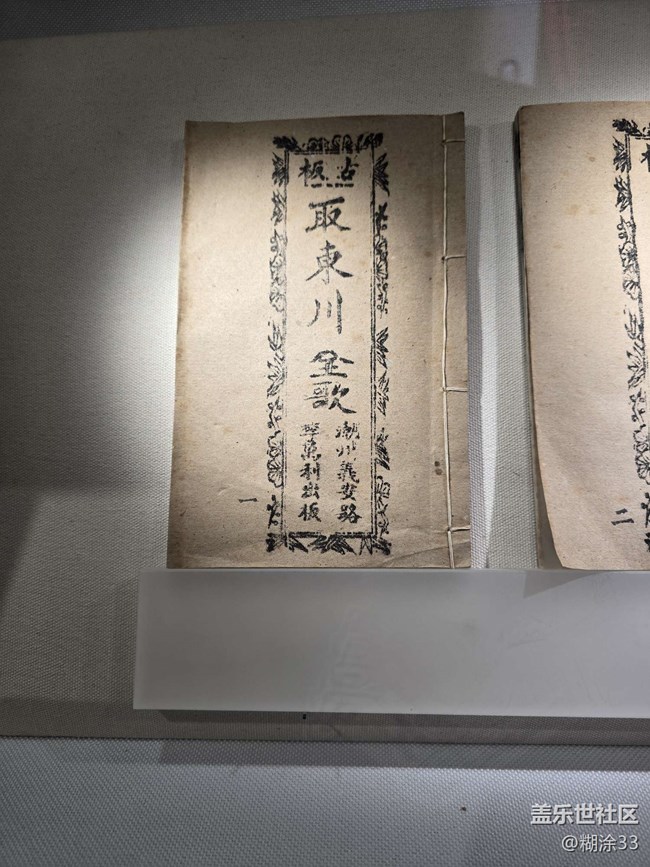 古板
取東川全歌
潮州義安路
李萬利出板
一
二
盖乐世社区
@糊涂33